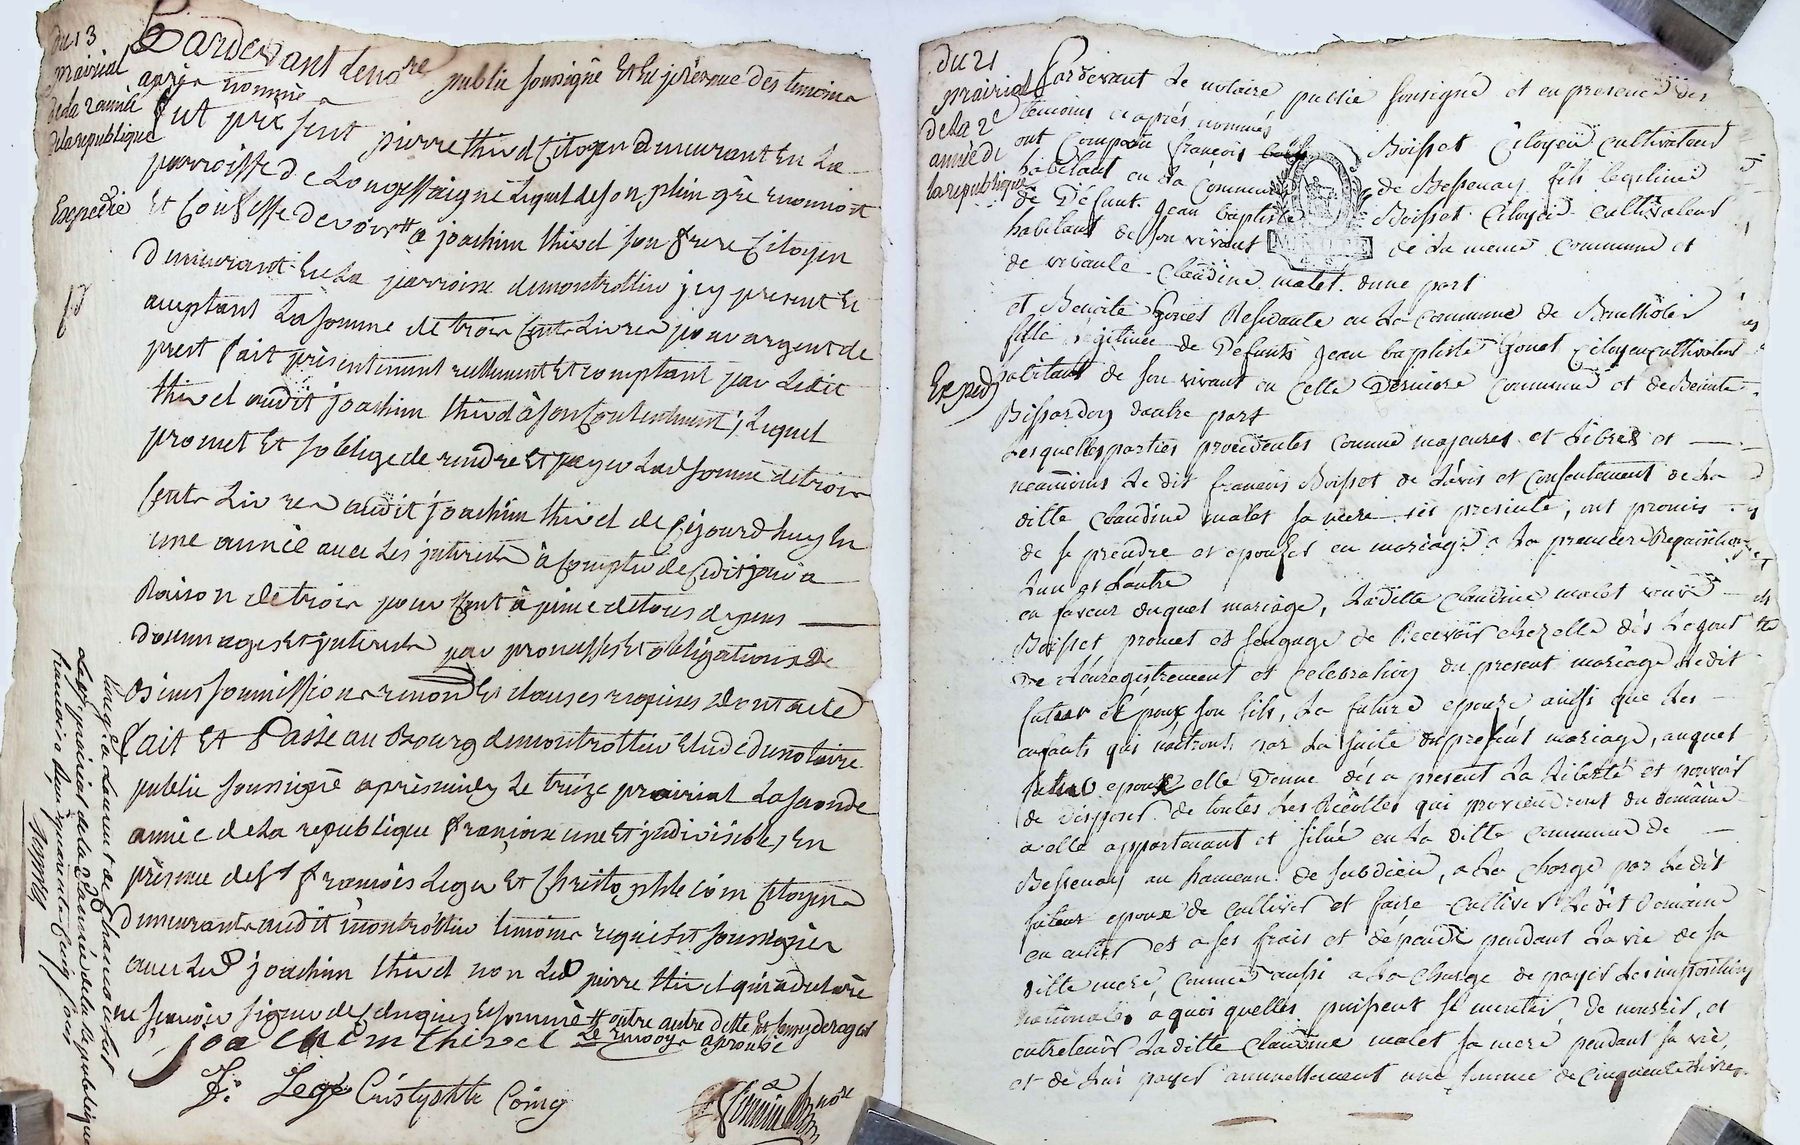 du 13
prairial
de la 2 année
de la republique
Expedié
Pardevant le no.re public soussigné Et En présence des temoins
après nommés
fut présent pierre thivel Citoyen demeurant En La
parroisse de Longessaigne Lequel de son plein gré reconnoit
Et Confesse devoir # a joachim thivel son frere Citoyen
demeurant En La parroisse de montrottier j cy present Et
aceptant La somme de trois Cents Livres pour argent de
prest fait présentement réellement Et comptant par Ledit
thivel audit joachim thivel à son Contentement, Lequel
promet Et soblige de rendre Et payer Lad somme de trois
Cents Livres audit joachim thivel de Cejourdhuy En
une année avec Les jnterests à Compter de Cedit jour a
Raison de trois pour Cent à peine de tous depens
dommages Et jnterests par promesses Et obligations de
biens soumissions renon Et clauses requises dont acte
fait Et Passé au Bourg de montrottier Etude du notaire
public soussigné après midy Le treize prairial La seconde
année de La republique françoise une Et jndivisible, En
présence de s.t françois Leger Et Christophle Coin Citoyens
demeurants audit montrottier temoins requis Et soussignés
avec Led joachim thivel non Led pierre thivel qui a declaré
ne scavoir signer de ce enquis Et sommé # outre autre dette
2 renvoys aprouvé
joachim thivel
f. Leger Cristophle Coing
Enreg.é a Laurent de Chamousset
Le prairial de La 2 année de la Republique
francoise Reçu quarante Cinq sols
du 21
prairial
de la 2e
année de
la republique
Exped
Pardevant Le notaire public soussigné et en presence des
temoins cy après nommés
ont Comparu françois Boisset Citoyen cultivateur
habitant en La Commune de Bessenay fils legitime
de Defunt Jean baptiste Boisset Citoyen cultivateur
habitant de son vivant de La meme Commune et
de vivante Claudine malet dune part
et Benoite Gonet Residante en La Commune de
fille Légitime de Defunts Jean baptiste Gonet Citoyen cultivateur
habitant de son vivant en Cette Derniere Commune et de Benoite
Bissardon dautre part
Lesquelles parties procedantes comme majeures et Libres et
néamoins Le dit françois Boisset de Lavis et Consentement de La
ditte Claudine malet sa mere ici presente, ont promis
de se prendre et epouser en mariage a La premiere Requisition
Lun et Lautre
en faveur duquel mariage, Ladite Claudine malet veuve
Boisset promet et sengage de Recevoir chez elle dès Le jour
de Lenregistrement et celebration du present mariage Ledit
futur epoux son fils, La future epouze ainsi que Les
enfants qui naitront par La suite du present mariage, auquel
futur epoux elle Donne dès a present La Liberté et pouvoir
de disposer de toutes Les Récoltes qui proviendront du domaine
a elle appartenant et situé en La ditte Commune de
Bessenay au hameau de subdieu, a La Charge par Ledit
futur epoux de cultiver et faire cultiver Ledit Domaine
en entier et a ses frais et dépends pendant La vie de sa
ditte mere, Comme aussi a La Charge de payer Les impositions
nationales a quoi quelles puissent se monter, de nourrir, et
entretenir Laditte Claudine malet sa mere pendant sa vie,
et de Lui payer annuellement une somme de Cinquante Livres